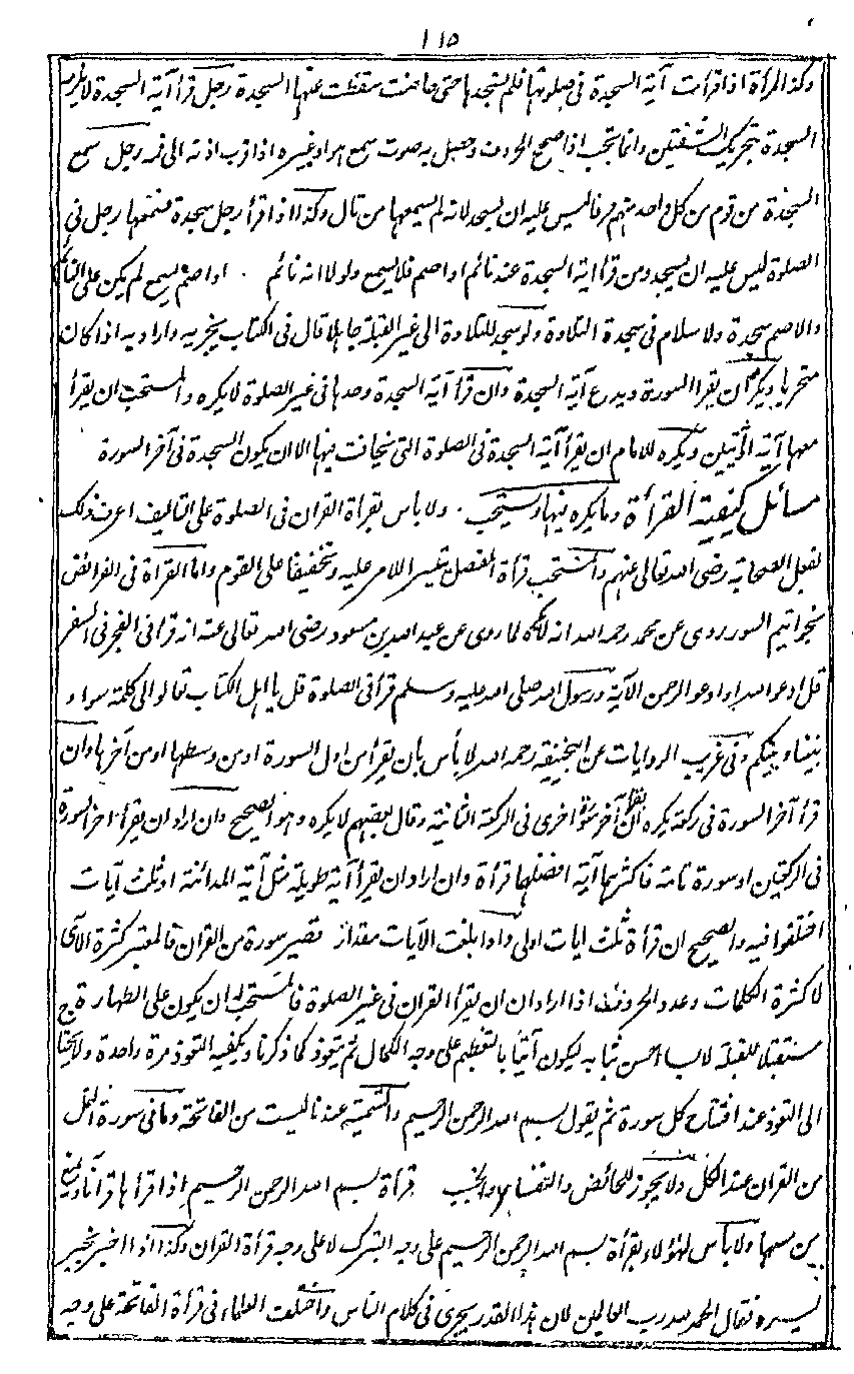 ١١٥
وكذا المرأة اذا قرأت آية السجدة فى صلوتها فلم تسجدها حتى حاضت سقطت عنها السجدة رجل قرأ آية السجدة لا يلزمه
السجدة بتحريك الشفتين وانما تجب اذا صحح الحروف وحصل به صوت سمع هو او غيره اذا قرب اذنه الى فمه رجل سمع
السجدة من قوم من كل واحد منهم حرفا ليس عليه ان يسجد لانه لم يسمعها من تال وكذا اذا قرأ رجل سجدة فسمعها رجل فى
الصلوة ليس عليه ان يسجد ومن قرأ اية السجدة عند نائم او اصم فلا يسمع ولولا انه نائم او اصم يسمع لم يكن على النائم
والاصم سجدة ولا سلام فى سجدة التلاوة ولو سجد للتلاوة الى غير القبلة جاهلا قال فى الكتاب يجزيه واراد به اذا كان
متحريا ويكره ان يقرا السورة ويدع آية السجدة وان قرأ آية السجدة وحدها فى غير الصلوة لا يكره والمستحب ان يقرأ
معها آية او آيتين ويكره للامام ان يقرأ آية السجدة فى الصلوة التى يخافت فيها الا ان يكون السجدة فى آخر السورة
مسائل كيفية القرأة وما يكره فيها ويستحب . ولا باس بقرأة القران فى الصلوة على التاليف اعرف ذلك
لفعل الصحابة رضى الله تعالى عنهم والمستحب قرأة المفصل تيسيرا للامر عليه وتخفيفا على القوم واما القرأة فى الفرائض
بخواتيم السور روى عن محمد رحمه الله انه لا يكره لما روى عن عبد الله بن مسعود رضى الله تعالى عنه انه قرأ فى الفجر فى السفر
قل ادعوا الله او ادعوا الرحمن الآية ورسول الله صلى الله عليه وسلم قرأ فى الصلوة قل يا اهل الكتاب تعالوا الى كلمة سواء
بيننا وبينكم وفى غريب الروايات عن ابيحنيفة رحمه الله لا بأس بأن يقرأ من اول السورة او من وسطها او من آخرها وان
قرأ آخر السورة فى ركعة يكره ان يقرأ آخر سورة اخرى فى الركعة الثانية وقال بعضهم لا يكره وهو الصحيح وان اراد ان يقرأ اخر السورة
فى الركعتين او سورة تامة فاكثرهما آية افضلهما قرأة وان اراد ان يقرأ آية طويلة مثل آية المداينة او ثلث آيات
اختلفوا فيه والصحيح ان قرأة ثلث ايات اولى واذا بلغت الآيات مقدار قصير سورة من القران فالمعتبر كثرة الآى
لا كثرة الكلمات وعدد الحروف اذا اراد ان يقرأ القران فى غير الصلوة فالمستحب له ان يكون على الطهارة
مستقبلا للقبلة لابسا احسن ثيابه ليكون آتيا بالتعظيم على وجه الكمال ثم يتعوذ كما ذكرنا ويكفيه التعوذ مرة واحدة ولا يحتاج
الى التعوذ عند افتتاح كل سورة ثم يقول بسم الله الرحمن الرحيم والتسمية عندنا ليست من الفاتحة وما فى سورة النمل
من القران عند الكل ولا يجوز للحائض والنفساء والجنب قرأة بسم الله الرحمن الرحيم اذا قرأها قرآنا ويمنع
من مسها ولا بأس لهؤلاء بقرأة بسم الله الرحمن الرحيم على وجه التبرك لا على وجه قرأة القران وكذا اذا اخبر بخبر
يسره فقال الحمد لله رب العالمين لان هذا القدر يجرى فى كلام الناس واختلفت العلماء فى قرأة الفاتحة على وجه